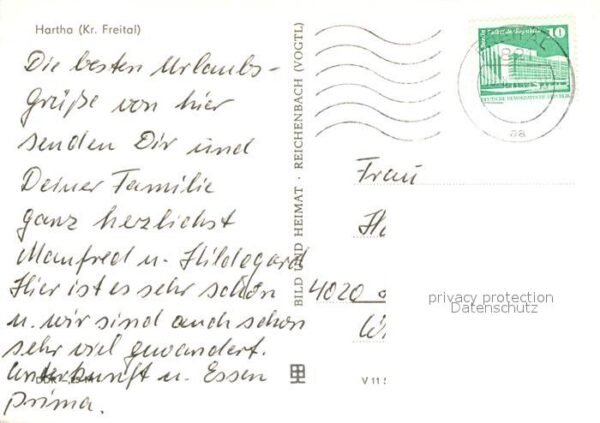 Hartha (Kr. Freital)
Die besten Urlaubs-
grüße von hier
senden Dir und
Deiner Familie
ganz herzlichst
Manfred u. Hildegard
Hier ist es sehr schön
u. wir sind auch schon
sehr viel gewandert.
Unterkunft u. Essen
prima.
BILD UND HEIMAT · REICHENBACH (VOGTL)
10
DEUTSCHE DEMOKRATISCHE REPUBLIK
Frau
4020
privacy protection
Datenschutz
V 11